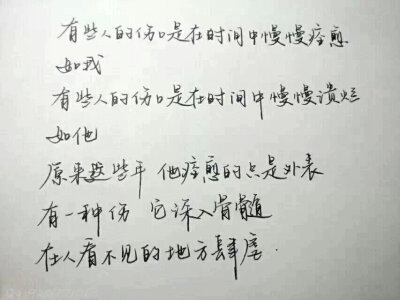 有些人的伤口是在时间中慢慢痊愈
如我
有些人的伤口是在时间中慢慢溃烂
如他
原来这些年 他痊愈的只是外表
有一种伤 它深入骨髓
在人看不见的地方肆虐.